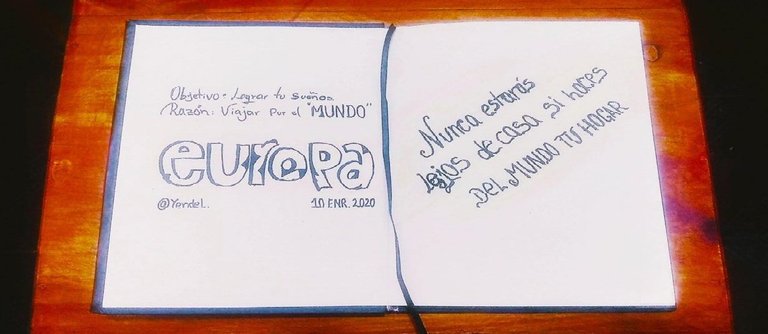 Objetivo: Lograr tu sueños.
Razón: Viajar por el "MUNDO"
europa
@Yendel.
10 ENR. 2020
Nunca estarás
lejos de casa si haces
DEL MUNDO TU HOGAR